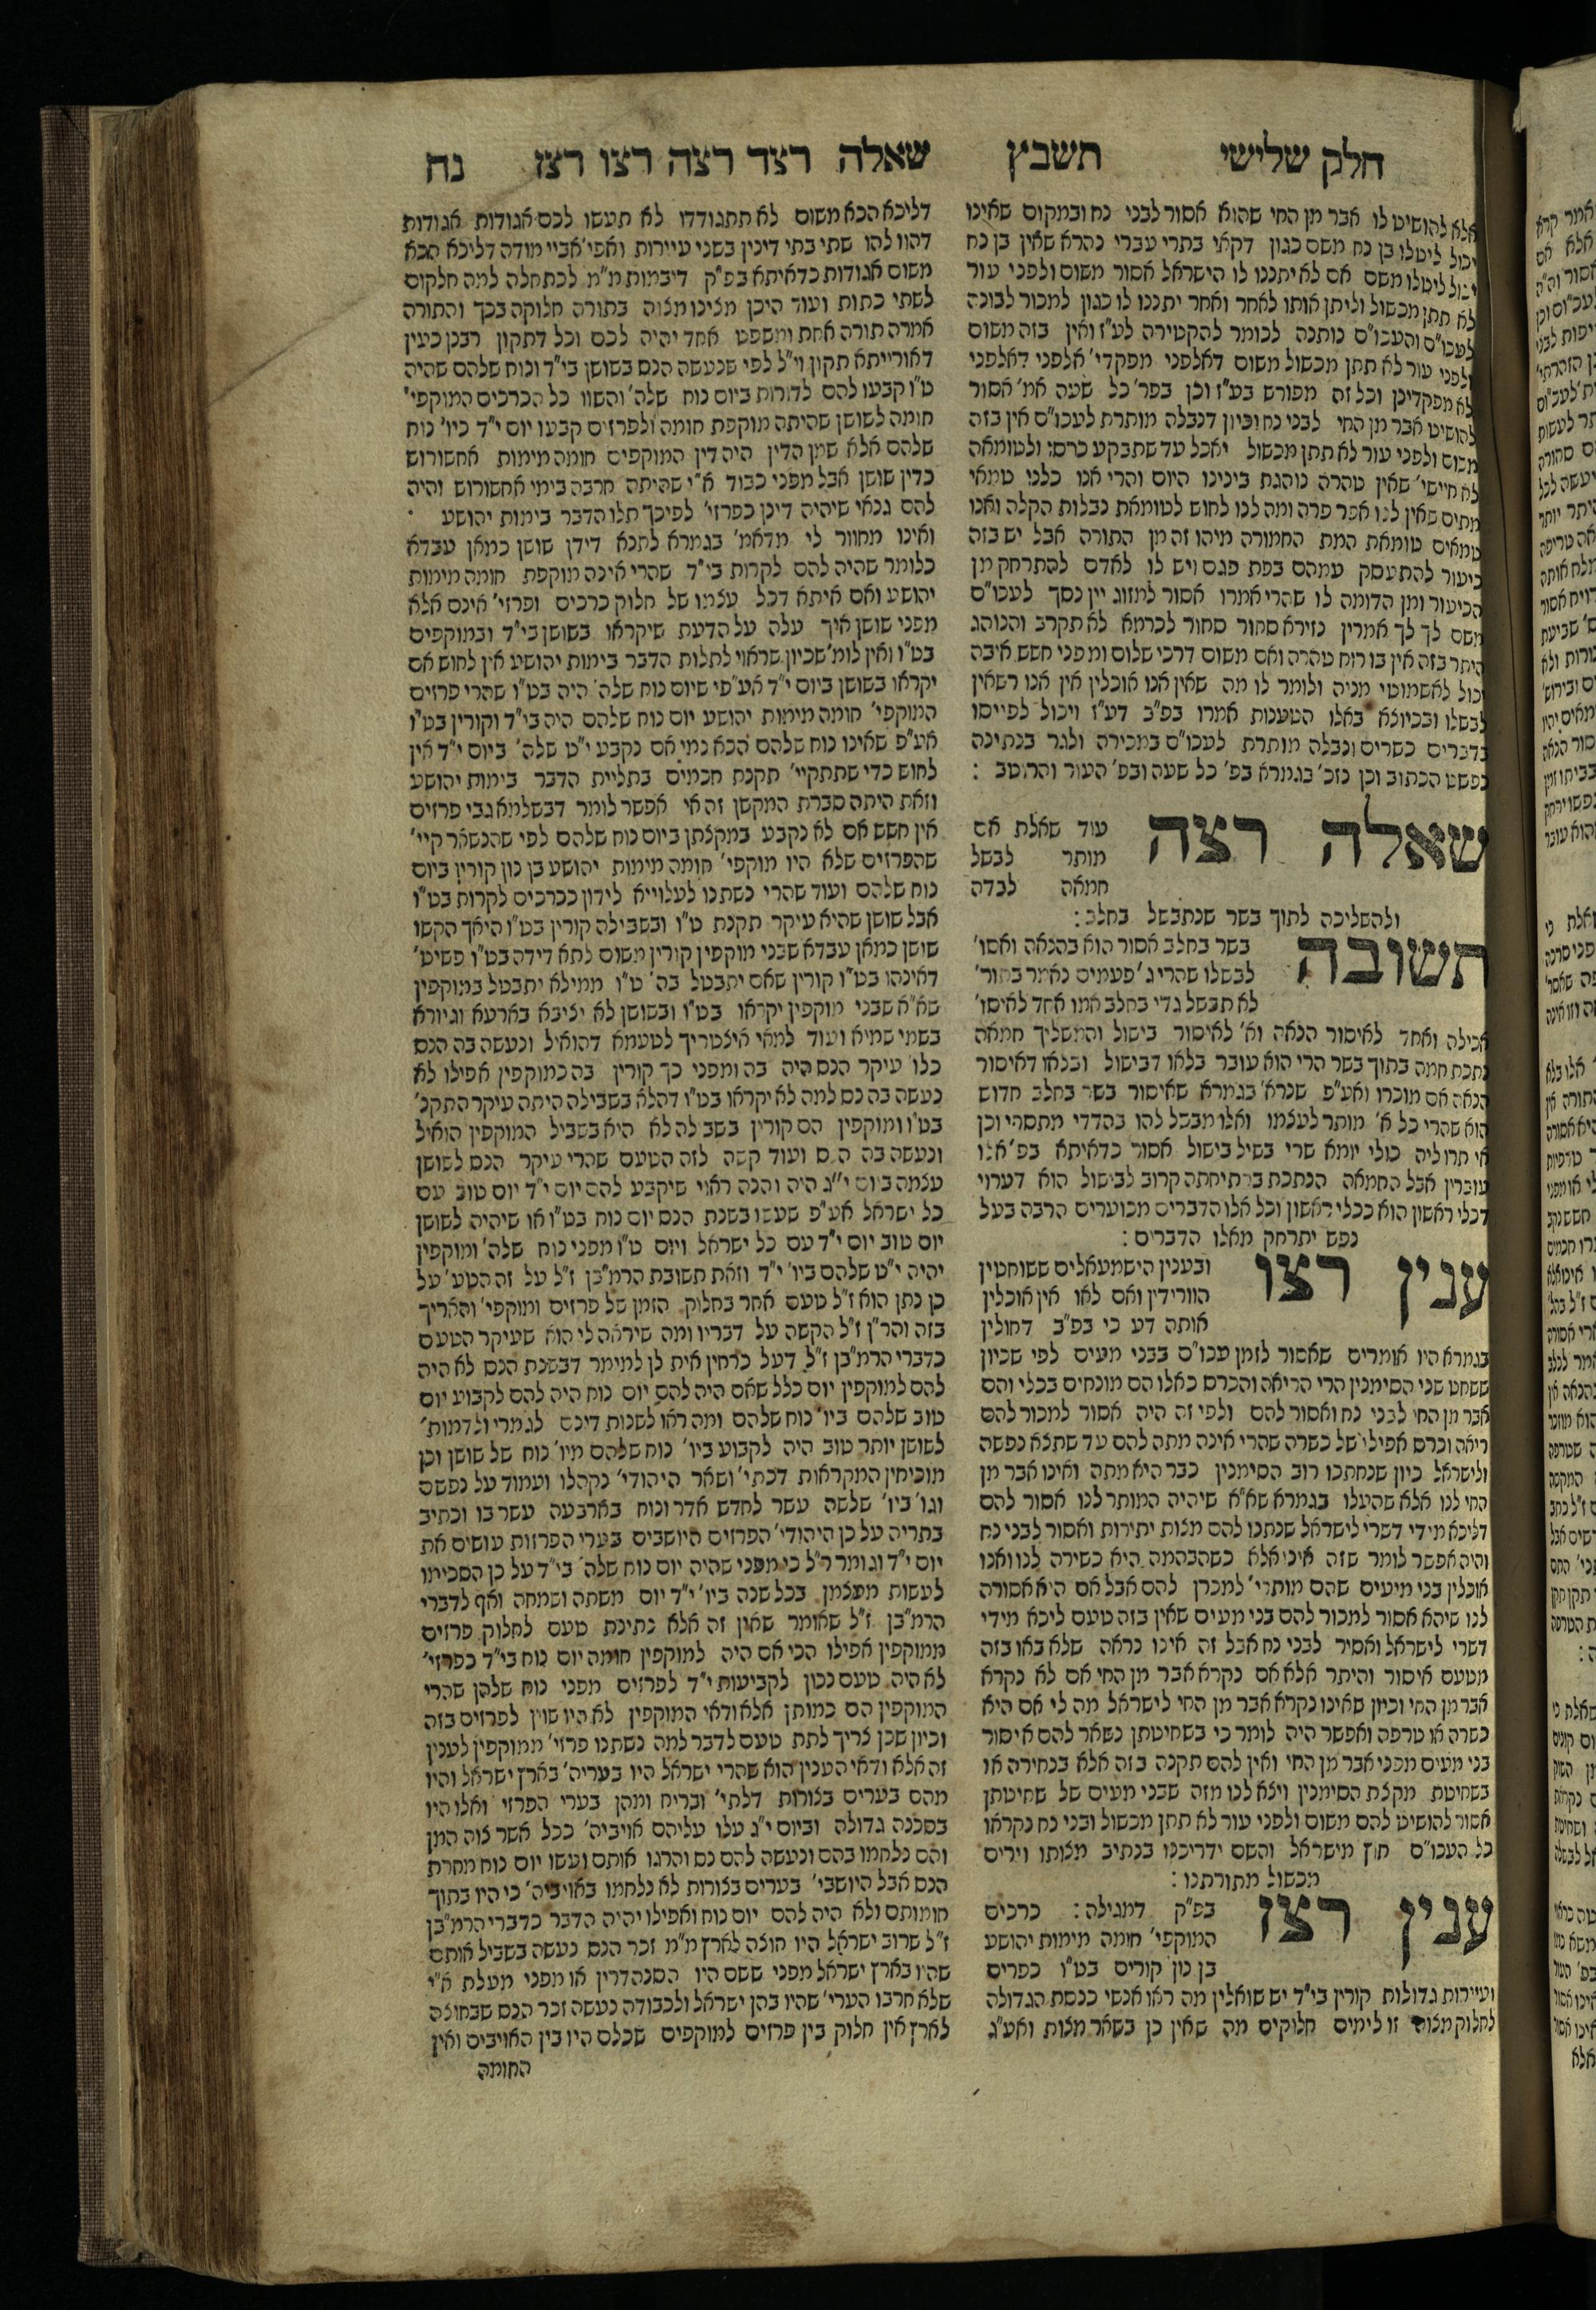 חלק שלישי תשבץ שאלה רצד רצה רצו רצז נח
אלא להושיט לו אבר מן החי שהוא אסור לבני נח ובמקום שאינו
יכול ליטלו בן נח משם כגון דקאי בתרי עברי נהרא שאין בן נח
יכול ליטלו משם אם לא יתננו לו הישראל אסור משום ולפני עור
לא תתן מכשול וליתן אותו לאחר ואחר יתננו לו כגון למכור לבונה
לעכו"ם והעכו"ם נותנה לכומר להקטירה לע"ז ואין בזה משום
ולפני עור לא תתן מכשול משום דאלפני מפקדי' אלפני דאלפני
לא מפקדינן וכל זה מפורש בע"ז וכן בפר' כל שעה אמ' אסור
להושיט אבר מן החי לבני נח וכיון דנבלה מותרת לעכו"ם אין בזה
משום ולפני עור לא תתן מכשול יאכל עד שתבקע כרסו ולטומאה
לא חיישי' שאין טהרה נוהגת בינינו היום והרי אנו כלנו טמאי
מתים שאין לנו אפר פרה ומה לנו לחוש לטומאת נבלות הקלה ואנו
טמאים טומאת המת החמורה מיהו זה מן התורה אבל יש בזה
כיעור להתעסק עמהם בפת פגם ויש לו לאדם להתרחק מן
הכיעור ומן הדומה לו שהרי אמרו אסור למזוג יין נסך לעכו"ם
משם לך לך אמרין נזירא סחור סחור לכרמא לא תקרב והנוהג
היתר בזה אין בו רוח טהרה ואם משום דרכי שלום ומפני חשש איבה
יכול לאשתמוטי מניה ולומר לו מה שאין אנו אוכלין אין אנו רשאין
לבשלו ובכיוצא באלו הטענות אמרו בפ"ב דע"ז ויכול לפייסו
בדברים כשרים ונבלה מותרת לעכו"ם במכירה ולגר בנתינה
כפשט הכתוב וכן נזכ' בגמרא בפ' כל שעה ובפ' העור והרוטב :
שאלה רצה עוד שאלת אם
מותר לבשל
חמאה לבדה
ולהשליכה לתוך בשר שנתבשל בחלב :
תשובה בשר בחלב אסור הוא בהנאה ואסו'
לבשלו שהרי ג' פעמים נאמר בתור'
לא תבשל גדי בחלב אמו אחד לאיסו'
אכילה ואחד לאיסור הנאה וא' לאיסור בישול והמשליך חמאה
נתכת חמה בתוך בשר הרי הוא עובר בלאו דבישול ובלאו דאיסור
הנאה אם מוכרו ואע"פ שנרא' בגמרא שאיסור בשר בחלב חדוש
הוא שהרי כל א' מותר לעצמו ואלו מבשל להו בהדדי מתסרי וכן
אי תרו ליה כולי יומא שרי בשיל בישול אסור כדאיתא בפ' אלו
עוברין אבל החמאה הנתכת ברתיחתה קרוב לבישול הוא דערוי
דכלי ראשון הוא ככלי ראשון וכל אלו הדברים מכוערים הרבה בעל
נפש יתרחק מאלו הדברים :
ענין רצו ובענין הישמעאלים ששוחטין
הוורידין ואם לאו אין אוכלין
אותה דע כי בפ"ב דחולין
בגמרא היו אומרים שאסור לזמן עכו"ם בבני מעים לפי שכיון
ששחט שני הסימנין הרי הריאה והכרס כאלו הם מונחים בכלי והם
אבר מן החי לבני נח ואסור להם ולפי זה היה אסור למכור להם
ריאה וכרס אפילו של כשרה שהרי אינה מתה להם עד שתצא נפשה
ולישראל כיון שנחתכו רוב הסימנין כבר היא מתה ואינו אבר מן
החי לנו אלא שהעלו בגמרא שא"א שיהיה המותר לנו אסור להם
דליכא מידי דשרי לישראל שנתנו להם מצות יתירות ואסור לבני נח
והיה אפשר לומר שזה אינו אלא כשהבהמה היא כשירה לנו ואנו
אוכלין בני מיעים שהם מותרי' למכרן להם אבל אם היא אסורה
לנו שיהא אסור למכור להם בני מעים שאין בזה טעם ליכא מידי
דשרי לישראל ואסיר לבני נח אבל זה אינו נראה שלא באו בזה
מטעם איסור והיתר אלא אם נקרא אבר מן החי אם לא נקרא
אבר מן החי וכיון שאינו נקרא אבר מן החי לישראל מה לי אם היא
כשרה או טרפה ואפשר היה לומר כי בשחיטתן נשאר להם איסור
בני מעים מפני אבר מן החי ואין להם תקנה בזה אלא בנחירה או
בשחיטת מקצת הסימנין ויצא לנו מזה שבני מעים של שחיטתן
אסור להושיט להם משום ולפני עור לא תתן מכשול ובני נח נקראו
כל העכו"ם חוץ מישראל והשם ידריכנו בנתיב מצותו וירים
מכשול מתורתנו :
ענין רצז בפ"ק דמגילה : כרכים
המוקפי' חומה מימות יהושע
בן נון קורים בט"ו כפרים
ועיירות גדולות קורין בי"ד יש שואלין מה ראו אנשי כנסת הגדולה
לחלוק מצוה זו לימים חלוקים מה שאין כן בשאר מצות ואע"ג
דליכא הכא משום לא תתגודדו לא תעשו לכם אגודות אגודות
דהוו להו שתי בתי דינין בשני עיירות ואפי' אביי מודה דליכא הכא
משום אגודות כדאיתא בפ"ק דיבמות מ"מ לכתחלה למה חלקום
לשתי כתות ועוד היכן מצינו מצוה בתורה חלוקה בכך והתורה
אמרה תורה אחת ומשפט אחד יהיה לכם וכל דתקון רבנן כעין
דאורייתא תקון וי"ל לפי שנעשה הנס בשושן בי"ד ונוח שלהם שהיה
ט"ו קבעו להם לדורות ביום נוח שלה' והשוו כל הכרכים המוקפי'
חומה לשושן שהיתה מוקפת חומה ולפרזים קבעו יום י"ד כיו' נוח
שלהם אלא שמן הדין היה דין המוקפים חומה מימות אחשורוש
כדין שושן אבל מפני כבוד א"י שהיתה חרבה בימי אחשורוש והיה
להם גנאי שיהיה דינן כפרזי' לפיכך תלו הדבר בימות יהושע
ואינו מחוור לי מדאמ' בגמרא לתנא דידן שושן כמאן עבדא
כלומר שהיה להם לקרות בי"ד שהרי אינה מוקפת חומה מימות
יהושע ואם איתא דכל עצמו של חלוק כרכים ופרזי' אינם אלא
מפני שושן איך עלה על הדעת שיקראו בשושן בי"ד ובמוקפים
בט"ו ואין לומ' שכיון שראוי לתלות הדבר בימות יהושע אין לחוש אם
יקראו בשושן ביום י"ד אע"פי שיום נוח שלה' היה בט"ו שהרי פרזים
המוקפי' חומה מימות יהושע יום נוח שלהם היה בי"ד וקורין בט"ו
אע"פ שאינו נוח שלהם הכא נמי אם נקבע י"ט שלה' ביום י"ד אין
לחוש כדי שתתקיי' תקנת חכמים בתליית הדבר בימות יהושע
וזאת היתה סברת המקשן זה אי אפשר לומר דבשלמא גבי פרזים
אין חשש אם לא נקבע במקצתן ביום נוח שלהם לפי שהנשאר קיי'
שהפרזים שלא היו מוקפי' חומה מימות יהושע בן נון קורין ביום
נוח שלהם ועוד שהרי נשתנו לעלוייא לידון ככרכים לקרות בט"ו
אבל שושן שהיא עיקר תקנת ט"ו ובשבילה קורין בט"ו היאך הקשו
שושן כמאן עבדא שבני מוקפין קורין משום לתא דידה בט"ו פשיט'
דאינהו בט"ו קורין שאם יתבטל בה' ט"ו ממילא יתבטל במוקפין
שא"א שבני מוקפין יקראו בט"ו ובשושן לא יציבא בארעא וגיורא
בשמי שמיא ועוד למאי איצטריך לטעמא דהואיל ונעשה בה הנס
כלו' עיקר הנס היה בה ומפני כך קורין בה כמוקפין אפילו לא
נעשה בה נס למה לא יקראו בט"ו דהלא בשבילה היתה עיקר התקנ'
בט"ו ומוקפין הם קורין בשבילה לא היא בשביל המוקפין הואיל
ונעשה בה הנס ועוד קשה לזה הטעם שהרי עיקר הנס לשושן
עצמה ביום י"ג היה והנה ראוי שיקבע להם יום י"ד יום טוב עם
כל ישראל אע"פ שעשו בשנת הנס יום נוח בט"ו או שיהיה לשושן
יום טוב יום י"ד עם כל ישראל ויום ט"ו מפני נוח שלה' ומוקפין
יהיה י"ט שלהם ביו' י"ד וזאת תשובת הרמ"בן ז"ל על זה הטע' על
כן נתן הוא ז"ל טעם אחר בחלוק הזמן של פרזים ומוקפי' והאריך
בזה והר"ן ז"ל הקשה על דבריו ומה שיראה לי הוא שעיקר הטעם
כדברי הרמ"בן ז"ל דעל כרחין אית לן למימר דבשנת הנס לא היה
להם למוקפין יום כלל שאם היה להם יום נוח היה להם לקבוע יום
טוב שלהם ביו' נוח שלהם ומה ראו לשנות דינם לגמרי ולדמות'
לשושן יותר טוב היה לקבוע ביו' נוח שלהם מיו' נוח של שושן וכן
מוכיחין המקראות דכתי' ושאר היהודי' נקהלו ועמוד על נפשם
וגו' ביו' שלשה עשר לחדש אדר ונוח בארבעה עשר בו וכתיב
בתריה על כן היהודי' הפרזים היושבים בערי הפרזות עושים את
יום י"ד וגומר ר"ל כי מפני שהיה יום נוח שלה' בי"ד על כן הסכימו
לעשות מעצמן בכל שנה ביו' י"ד יום משתה ושמחה ואף לדברי
הרמ"בן ז"ל שאומר שאין זה אלא נתינת טעם לחלוק פרזים
ממוקפין אפילו הכי אם היה למוקפין חומה יום נוח בי"ד כפרזי'
לא היה טעם נכון לקביעות י"ד לפרזים מפני נוח שלהן שהרי
המוקפין הם כמותן אלא ודאי המוקפין לא היו שוין לפרזים בזה
וכיון שכן צריך לתת טעם לדבר למה נשתנו פרזי' ממוקפין לענין
זה אלא ודאי הענין הוא שהרי ישראל היו בעריה' בארץ ישראל והיו
מהם בערים בצורות דלתי' ובריח ומהן בערי הפרזי ואלו היו
בסכנה גדולה וביום י"ג עלו עליהם אויביה' ככל אשר צוה המן
והם נלחמו בהם ונעשה להם נס והרגו אותם ועשו יום נוח מחרת
הנס אבל היושבי' בערים בצורות לא נלחמו באויביה' כי היו בתוך
חומותם ולא היה להם יום נוח ואפילו יהיה הדבר כדברי הרמ"בן
ז"ל שרוב ישראל היו חוצה לארץ מ"מ זכר הנס נעשה בשביל אותם
שהיו בארץ ישראל מפני ששם היו הסנהדרין או מפני מעלת א"י
שלא חרבו הערי' שהיו בהן ישראל ולכבודה נעשה זכר הנס שבחוצה
לארץ אין חלוק בין פרזים למוקפים שכלם היו בין האויבים ואין
החומה